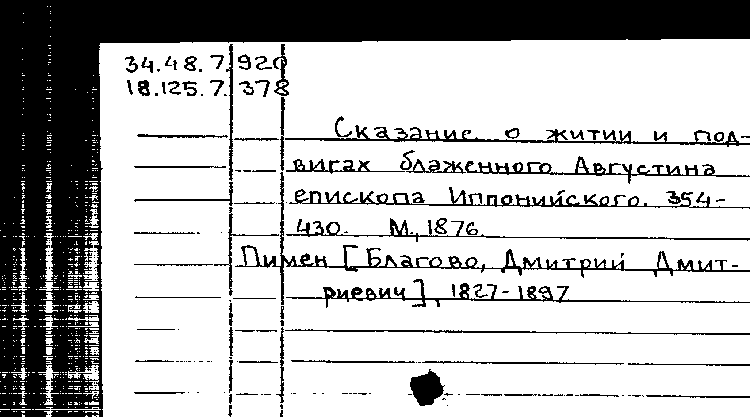 34.48.7.920
18.125.7.378
Сказание о житии и под-
вигах блаженного Августина
епископа Иппонийского. 354-
430. М., 1876.
Пимен [Благово, Дмитрий Дмит-
риевич], 1827-1897